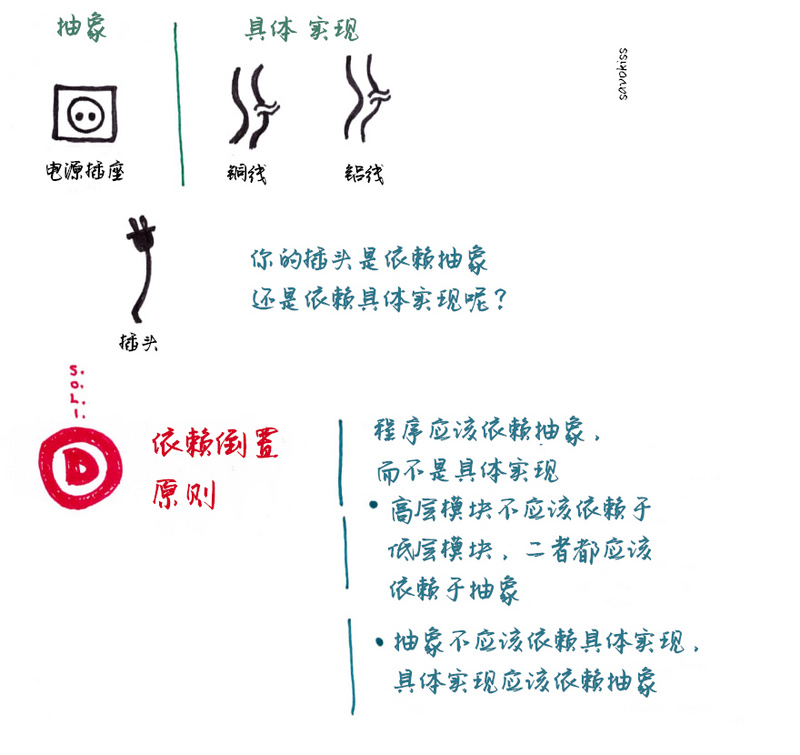 抽象
具体实现
savokiss
电源插座
铜线
铝线
你的插头是依赖抽象
还是依赖具体实现呢？
插头
S.
O.
L.
I.
D
依赖倒置
原则
程序应该依赖抽象，
而不是具体实现
• 高层模块不应该依赖于
低层模块，二者都应该
依赖于抽象
• 抽象不应该依赖具体实现，
具体实现应该依赖抽象